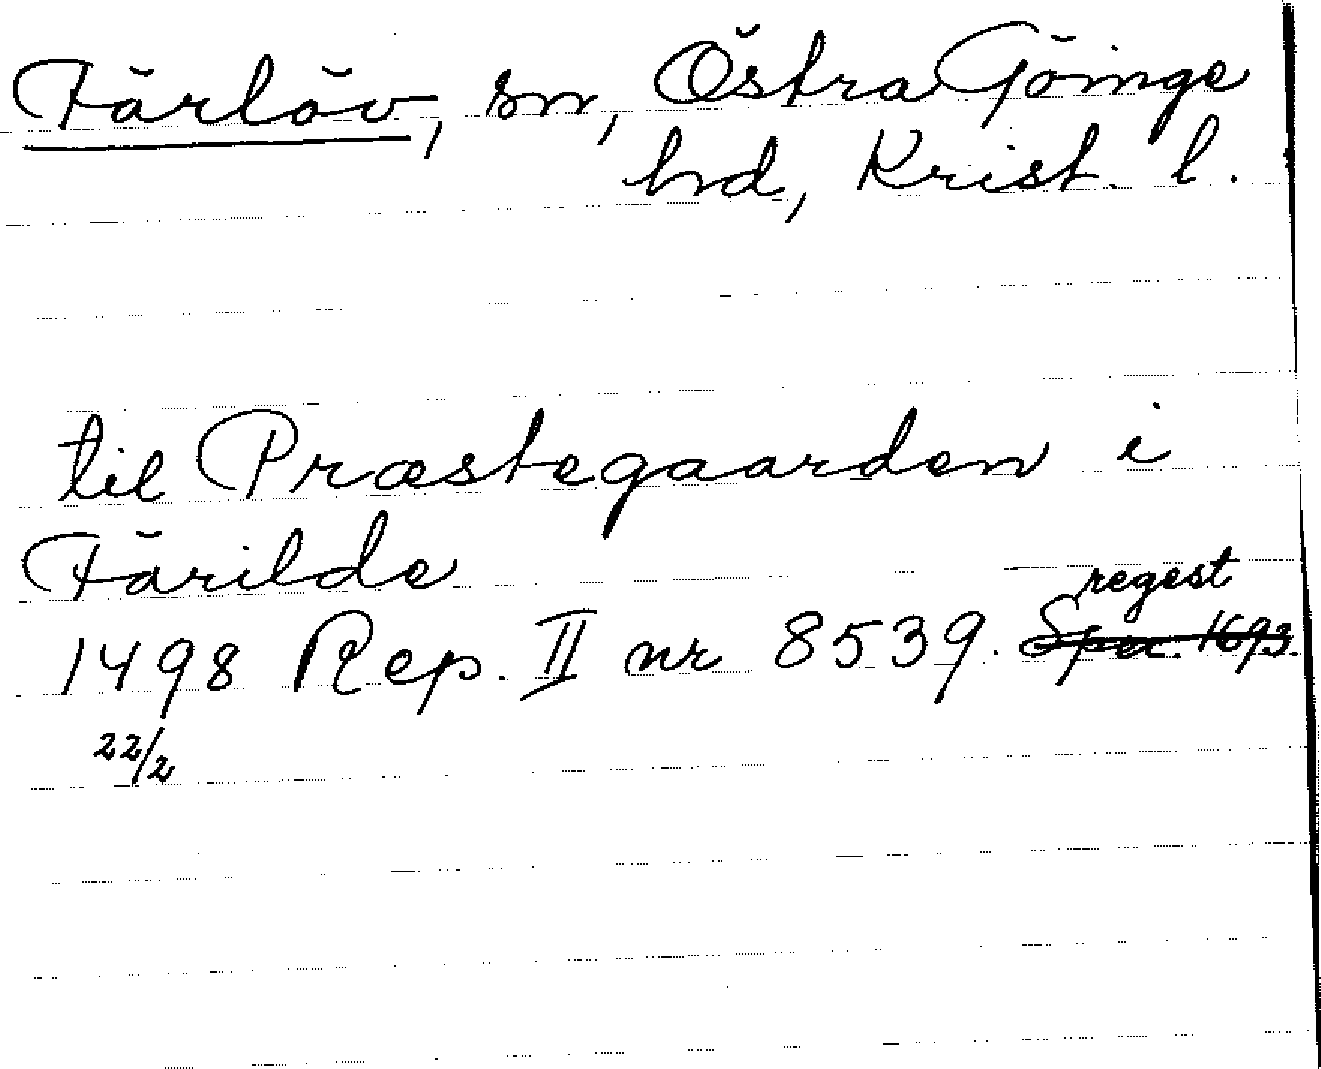 Färlöv, sn, Östra Göinge
hd, Krist. l.
til Præstegaarden i
Färilde
regest
1498 Rep. II nr 8539. Spa 1693.
22/2